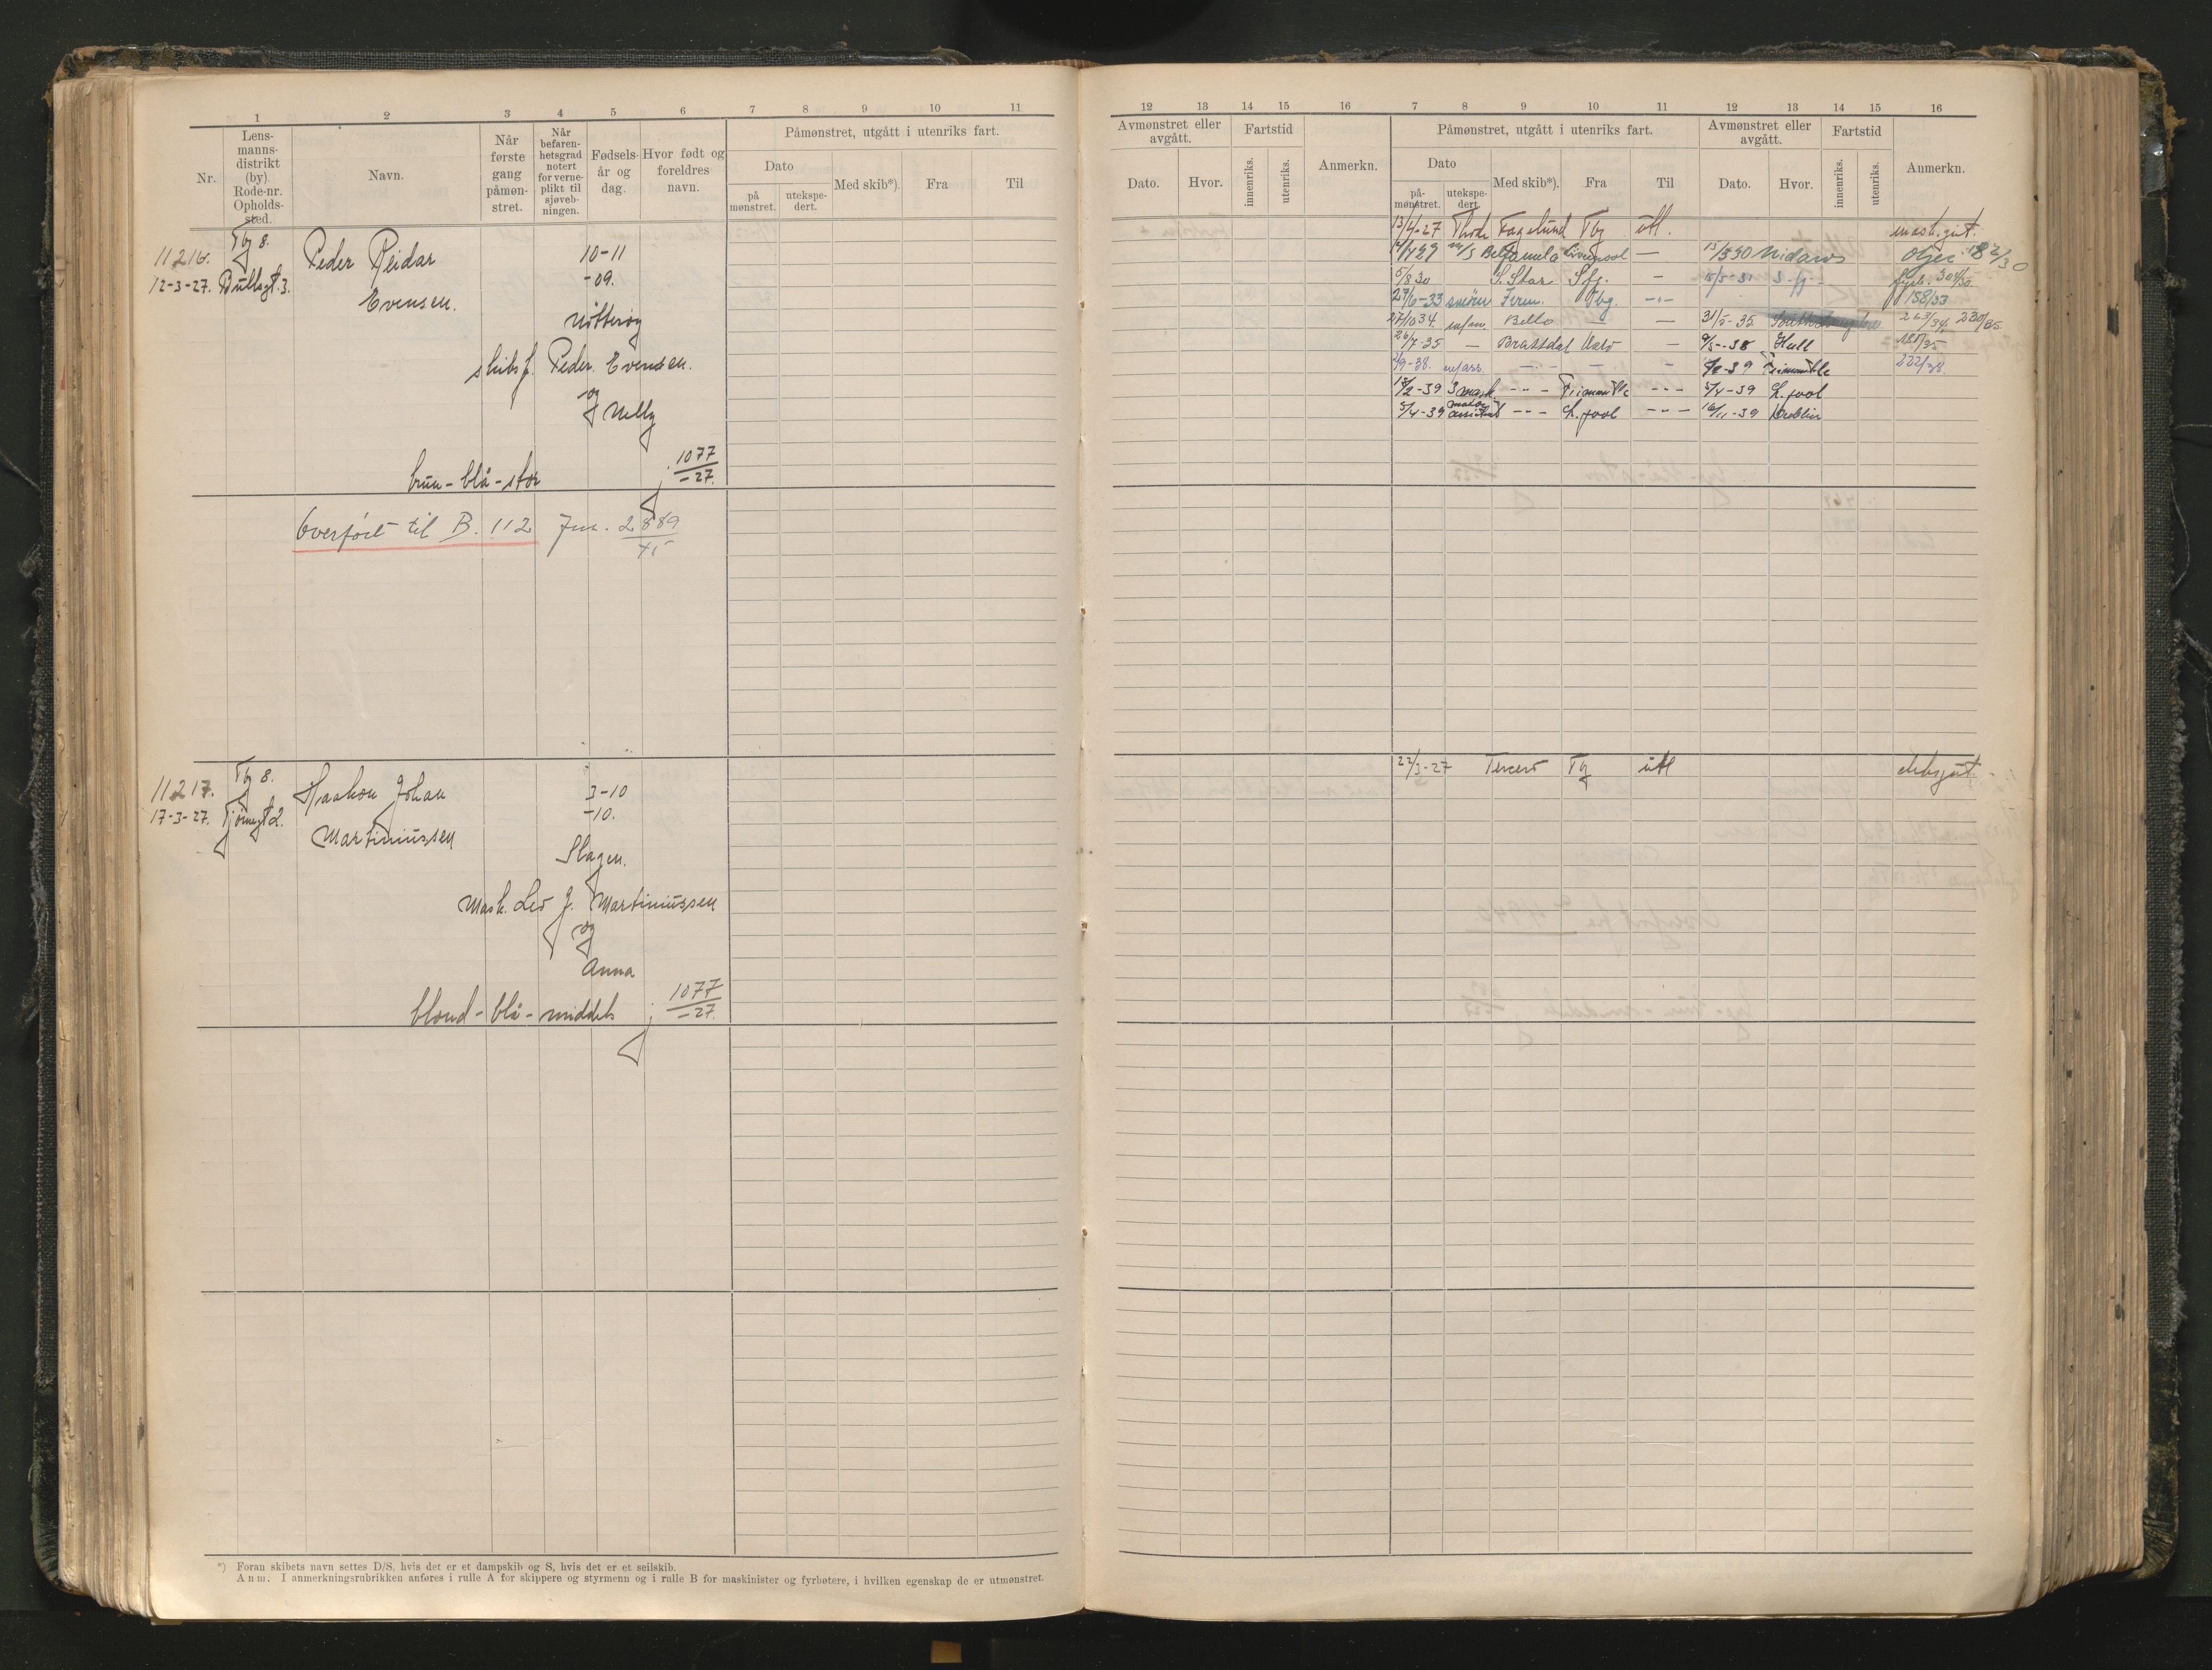 1 2 3 4 5 6 7 8 9 10 11
Nr.
Lens-
manns-
distrikt
(by).
Rode-nr.
Opholds-
sted.
Navn.
Når
første
gang
påmøn-
stret.
Når
befaren-
hetsgrad
notert
for verne-
plikt til
sjøveb-
ningen.
Fødsels-
år og
dag.
Hvor født og
foreldres
navn.
Påmønstret, utgått i utenriks fart.
Dato
på
mønstret.
utekspe-
dert.
Med skib*).
Fra
Til
11216. Tbg 8.
12-3-27. Bullsgt. 3.
Peder Reidar
Evensen.
10-11
-09.
Nøtterøy
skibsf. Peder Evensen.
og
Nelly
brun - blå - stor
j. 1077
-27.
Overført til B. 112 Jnr. 2889
45
11217. Tbg 8.
17-3-27. Tjømegt 2.
Haakon Johan
Martiniussen
3-10
-10.
Slagen.
Mask. Leo J. Martiniussen
og
Anna
blond - blå - middels
j. 1077
-27.
*) Foran skibets navn settes D/S, hvis det er et dampskib og S, hvis det er et seilskib.
Anm. I anmerkningsrubrikken anføres i rulle A for skippere og styrmenn og i rulle B for maskinister og fyrbøtere, i hvilken egenskap de er utmønstret.
12 13 14 15 16 7 8 9 10 11 12 13 14 15 16
Avmønstret eller
avgått.
Dato.
Hvor.
Fartstid
innenriks.
utenriks.
Anmerkn.
Påmønstret, utgått i utenriks fart.
Dato
på-
mønstret.
utekspe-
dert.
Med skib*).
Fra
Til
Avmønstret eller
avgått.
Dato.
Hvor.
Fartstid
innenriks.
utenriks.
Anmerkn.
13/4-27 Thode Fagelund Tbg utl. mask.gut.
14/4 29 m/s Beljamela Liverpool — 13/5 30 Nidaros Oljer 182/30
5/8 30 S. Star Sfj. — 15/5-31 S.fj. fyrb. 304/30
27/6-33 smører Ferm. Tbg. -"- 158/33
27/10 34. m/m Bello — — 31/5-35 263/34, 230/35.
26/7-35 — Brattdal Oslo — 9/5-38 Hull 185/35
/9-38. m/ass. -"- — — /2-39 222/38.
/2-39 3 mask. -"- -"- 5/4-39 L.pool
5/4-39 motor assistent -"- L.pool -"- 16/11-39 Dublin
22/3-27 Tercero Tbg utl dekksgut.